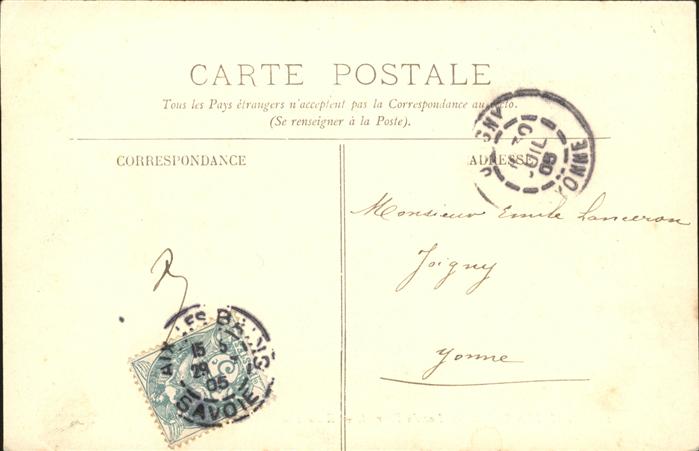 CARTE POSTALE
Tous les Pays étrangers n'acceptent pas la Correspondance au recto.
(Se renseigner à la Poste).
CORRESPONDANCE
ADRESSE
JOIGNY
30
JUIL
05
YONNE
Monsieur Emile Lanceron
Joigny
Yonne
AIX-LES-BAINS
15
29
05
SAVOIE
5